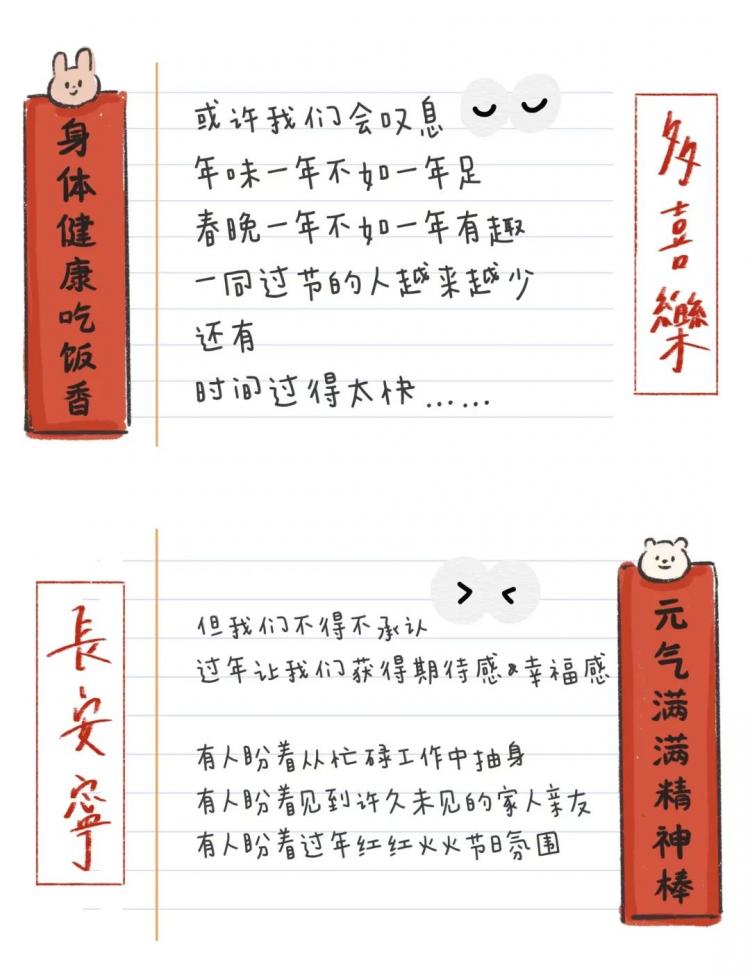 身体健康吃饭香
或许我们会叹息
年味一年不如一年足
春晚一年不如一年有趣
一同过节的人越来越少
还有
时间过得太快……
多喜樂
長安寧
但我们不得不承认
过年让我们获得期待感&幸福感
有人盼着从忙碌工作中抽身
有人盼着见到许久未见的家人亲友
有人盼着过年红红火火节日氛围
元气满满精神棒